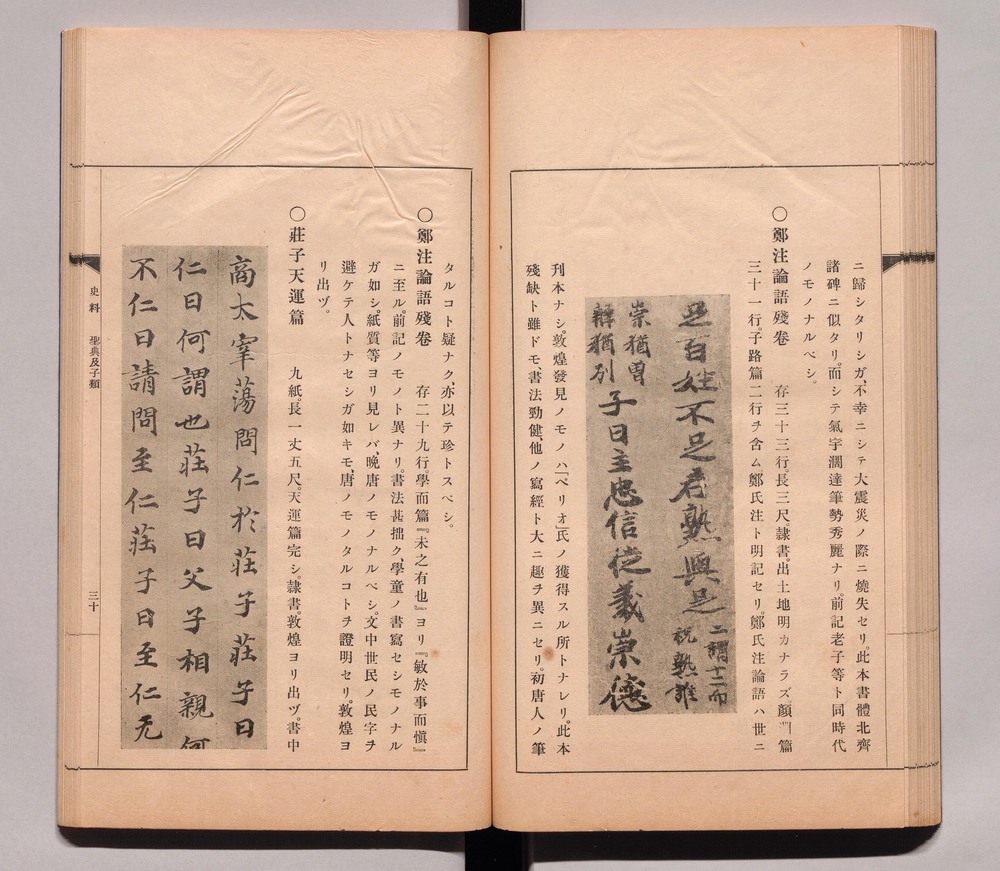 ニ歸シタリシガ、不幸ニシテ大震災ノ際ニ燒失セリ。此本書體北齊
諸碑ニ似タリ。而シテ氣宇濶達筆勢秀麗ナリ。前記老子等ト同時代
ノモノナルベシ。
〇鄭注論語殘卷 存三十三行。長三尺。隷書。出土地明カナラズ。顏 篇
三十一行。子路篇二行ヲ含ム。鄭氏注ト明記セリ。鄭氏注論語ハ世ニ
足百姓不足君熟與足 二謂十二而
税熟誰
崇猶曽
辯猶別 子曰主忠信徙義崇德
刊本ナシ。敦煌發見ノモノハ「ペリオ」氏ノ獲得スル所トナレリ。此本
殘缺ト雖ドモ、書法勁健、他ノ寫經ト大ニ趣ヲ異ニセリ。初唐人ノ筆
タルコト疑ナク、亦以テ珍トスベシ。
〇鄭注論語殘卷 存二十九行。學而篇『未之有也』ヨリ『敏於事而愼』
ニ至ル。前記ノモノト異ナリ。書法甚拙ク、學童ノ書寫セシモノナル
ガ如シ。紙質等ヨリ見レバ、晩唐ノモノナルベシ。文中世民ノ民字ヲ
避ケテ人トナセシガ如キモ、唐ノモノタルコトヲ證明セリ。敦煌ヨ
リ出ヅ。
〇莊子天運篇 九紙。長一丈五尺。天運篇完シ。隷書。敦煌ヨリ出ヅ。書中
商太宰蕩問仁於莊子莊子曰
仁曰何謂也莊子曰父子相親何
不仁曰請問至仁莊子曰至仁无
史料 聖典及子類 三十